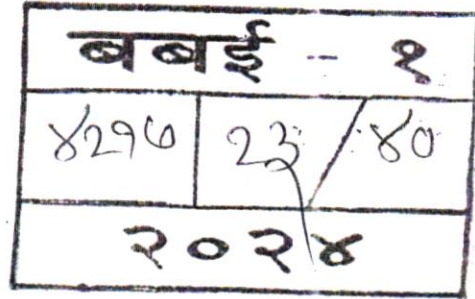 बबई - १
४२१७ २३/४०
२०२४